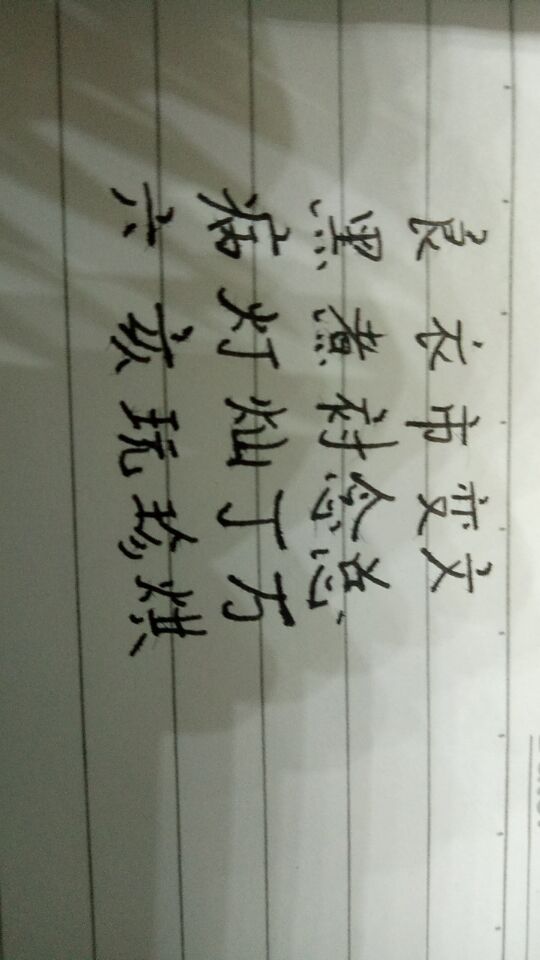 良衣市变文
黑煮衬念总
病灯灿丁万
六亥玩珍烘